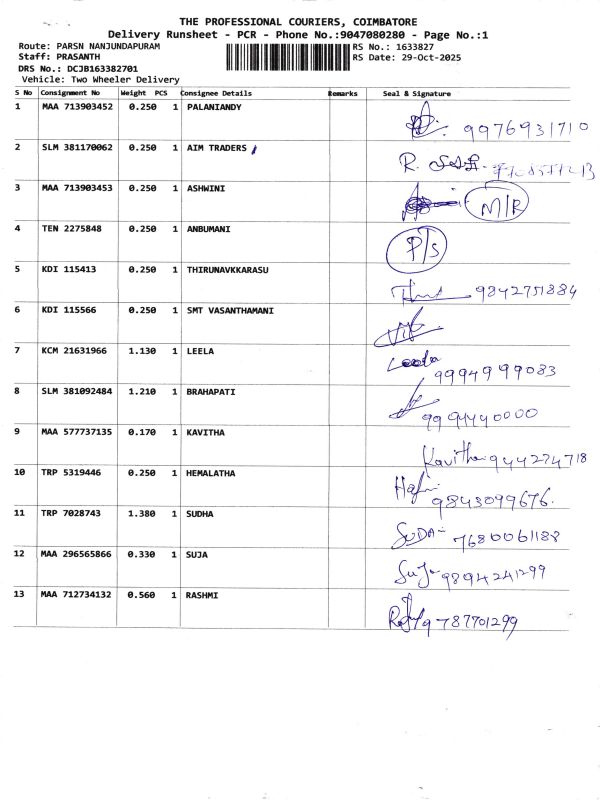 THE PROFESSIONAL COURIERS, COIMBATORE
Delivery Runsheet - PCR - Phone No.:9047080280 - Page No.:1
Route: PARSN NANJUNDAPURAM RS No.: 1633827
Staff: PRASANTH RS Date: 29-Oct-2025
DRS No.: DCJB163382701
Vehicle: Two Wheeler Delivery
S No Consignment No Weight PCS Consignee Details Remarks Seal & Signature
1 MAA 713903452 0.250 1 PALANIANDY
9976931710
2 SLM 381170062 0.250 1 AIM TRADERS
R.
3 MAA 713903453 0.250 1 ASHWINI
M/R
4 TEN 2275848 0.250 1 ANBUMANI
P/S
5 KDI 115413 0.250 1 THIRUNAVKKARASU
9842751884
6 KDI 115566 0.250 1 SMT VASANTHAMANI
7 KCM 21631966 1.130 1 LEELA
Leela
9994999083
8 SLM 381092484 1.210 1 BRAHAPATI
9994440000
9 MAA 577737135 0.170 1 KAVITHA
Kavitha 944274718
10 TRP 5319446 0.250 1 HEMALATHA
9843099676.
11 TRP 7028743 1.380 1 SUDHA
SUDA- 7680061188
12 MAA 296565866 0.330 1 SUJA
SuJa 9894241299
13 MAA 712734132 0.560 1 RASHMI
9787701299